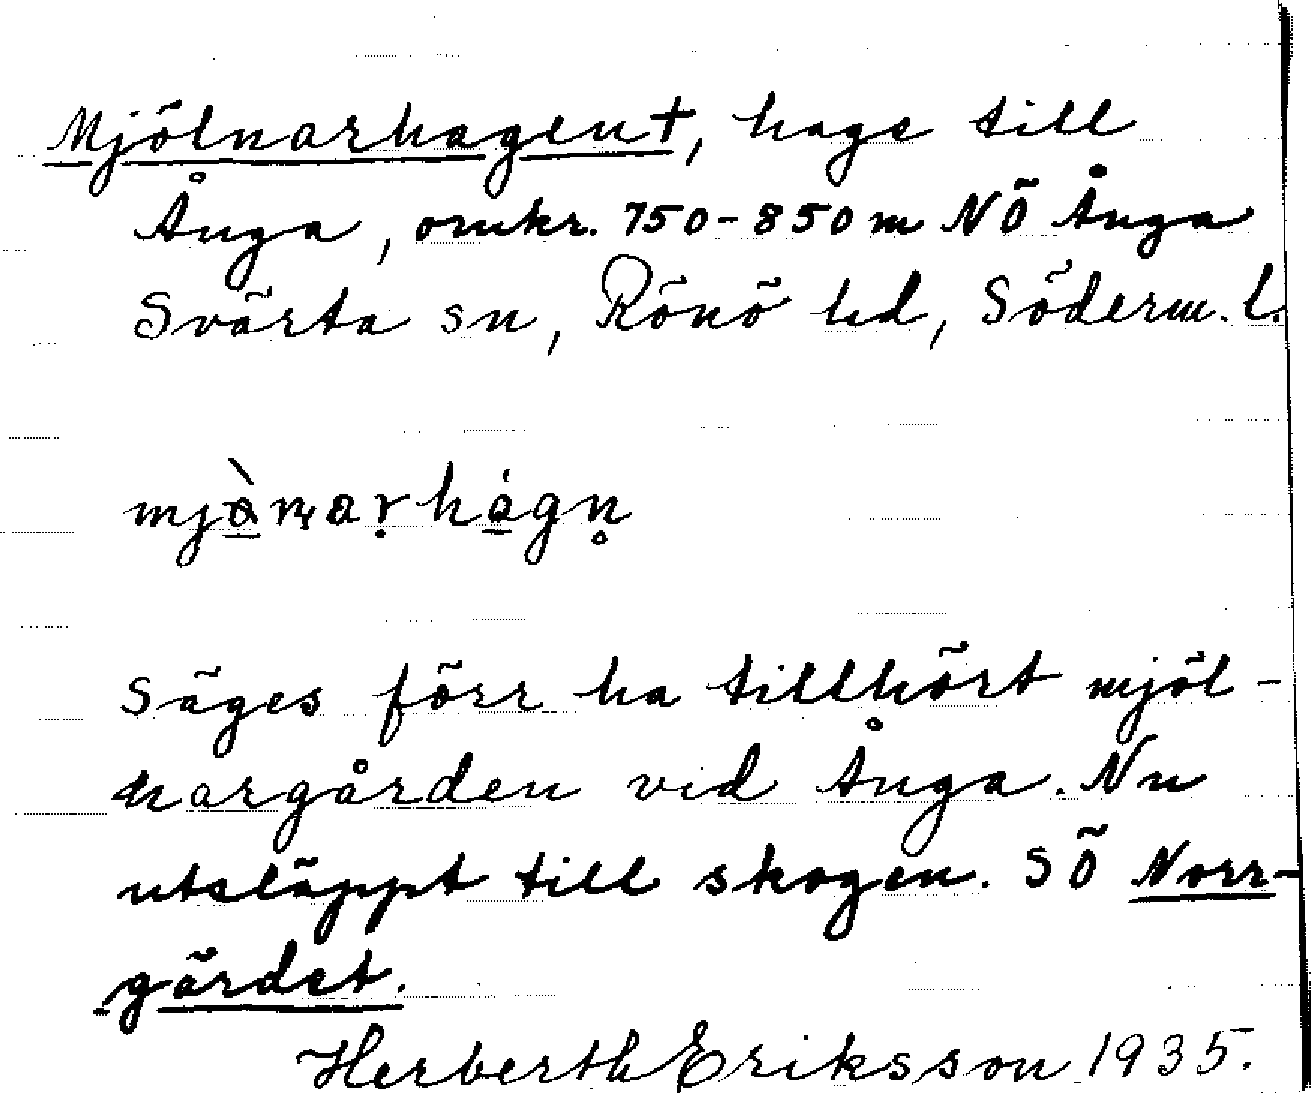 Mjölnarhagen†, hage till
Ånga, omkr. 750-850 m NÖ Ånga
Svärta sn, Rönö hd, Söderm. l.
mjò̱ṇaṛhág̱n̥
Säges förr ha tillhört mjöl-
nargården vid Ånga. Nu
utsläppt till skogen. SÖ Norr-
gärdet.
Herberth Eriksson 1935.